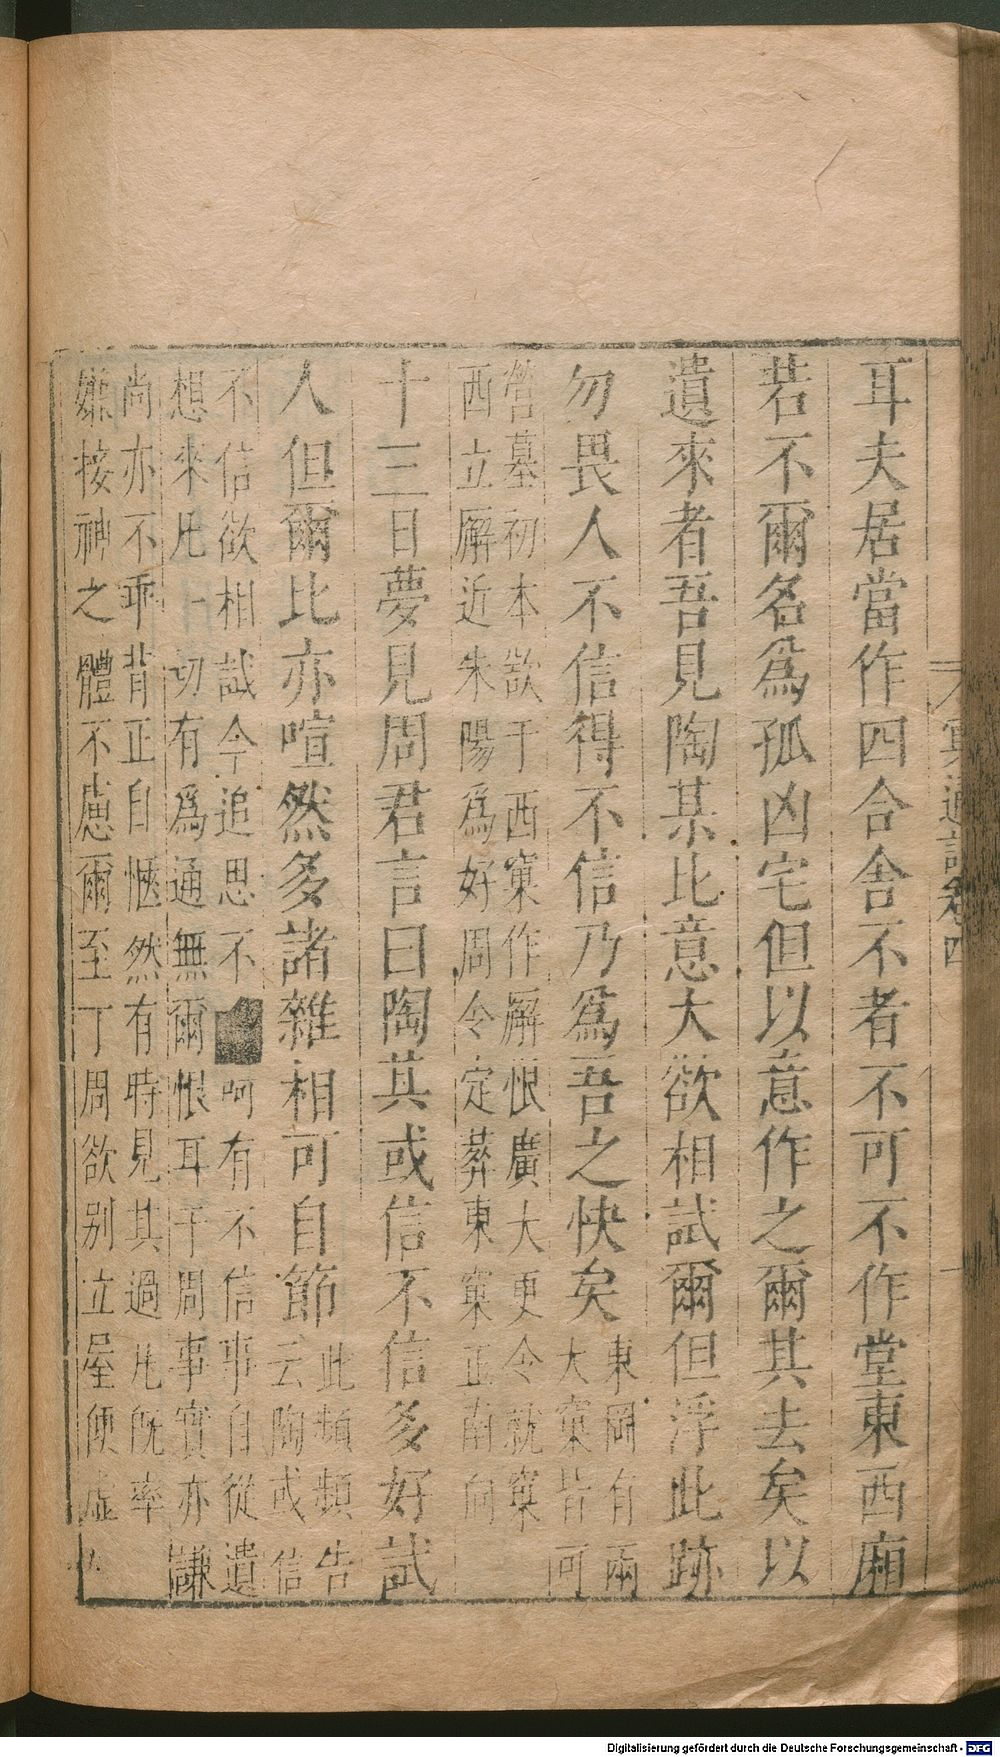 耳夫居當作四合舍不者不可不作堂東西廂
若不爾名爲孤凶宅但以意作之爾其去矣以
遺來者吾見陶某比意大欲相試爾但浮此跡
勿畏人不信得不信乃爲吾之快矣
東岡有兩
大窠皆可
營墓初本欲于西窠作廨恨廣大更令就窠
西立廨近朱陽爲好周令定葬東窠正南向
十三日夢見周君言曰陶某或信不信多好試
人但爾比亦喧然多諸雜相可自節
此頻頻告
云陶或信
不信欲相試今追思不 呵有不信事自從遺
想來凡一切有爲通無爾恨耳于周事實亦謙
尚亦不乖背正自愜然有時見其過凡既率
嫌接神之體不慮爾至丁周欲别立屋便虛
冥通記卷四
Digitalisierung gefördert durch die Deutsche Forschungsgemeinschaft - DFG